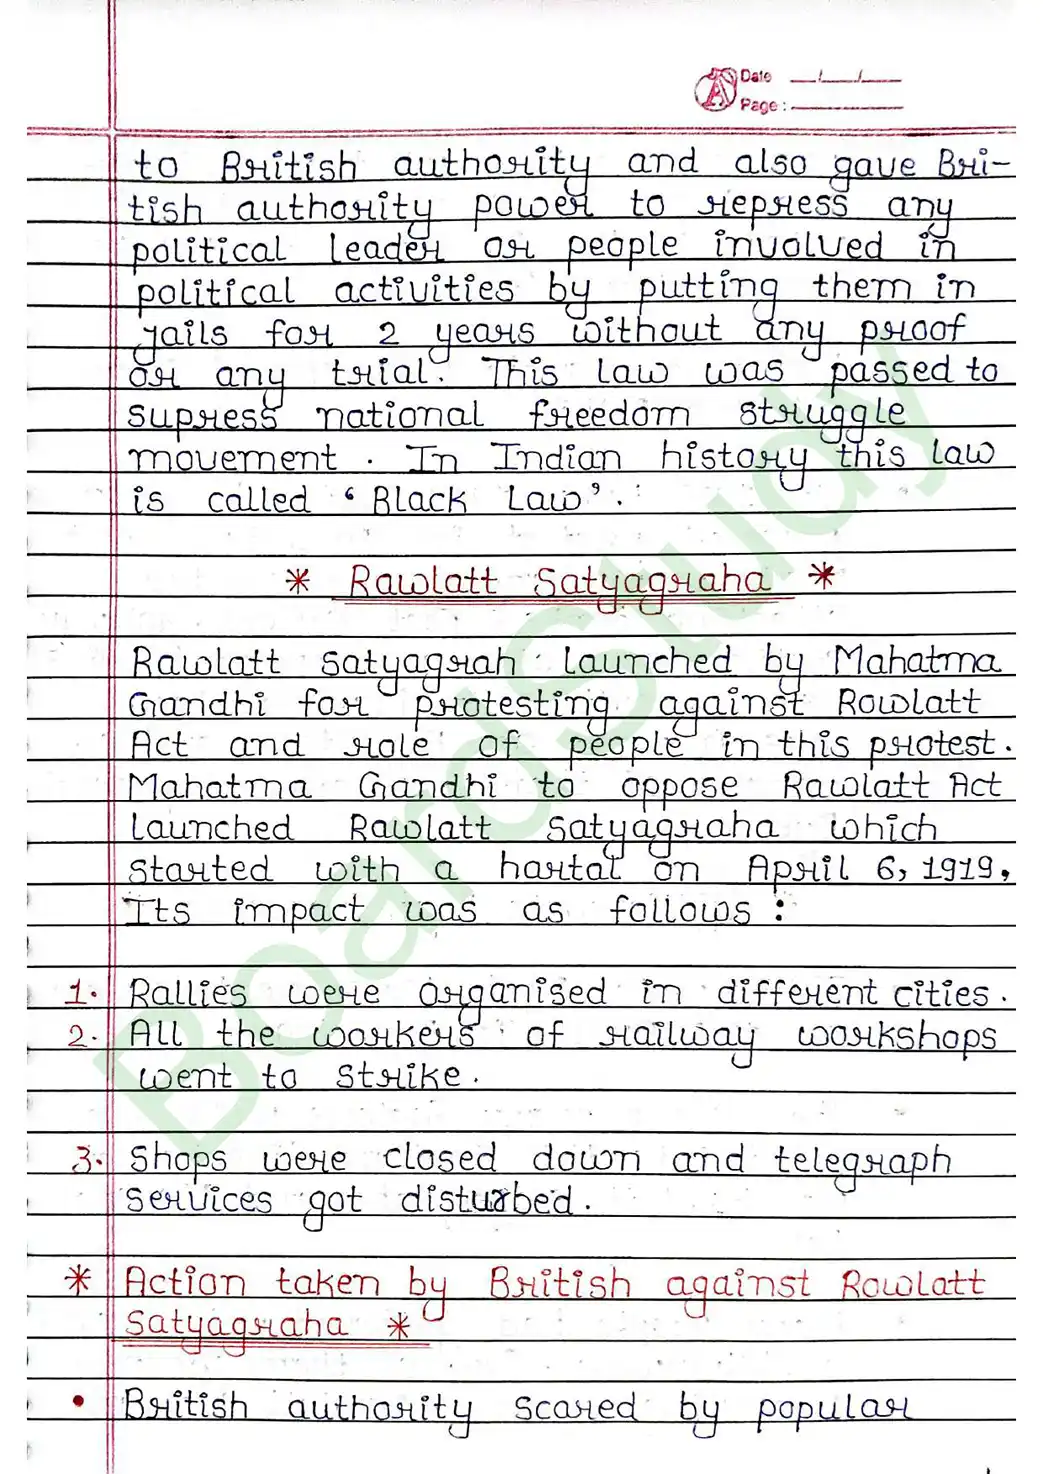 Date __/__/__
Page :
to British authority and also gave Bri-
tish authority power to repress any
political leader or people involved in
political activities by putting them in
jails for 2 years without any proof
or any trial. This law was passed to
supress national freedom struggle
movement. In Indian history this law
is called ‘Black Law’.
* Rawlatt Satyagraha *
Rawlatt satyagrah launched by Mahatma
Gandhi for protesting against Rowlatt
Act and role of people in this protest.
Mahatma Gandhi to oppose Rawlatt Act
launched Rawlatt Satyagraha which
started with a hartal on April 6, 1919,
Its impact was as follows :
1. Rallies were organised in different cities.
2. All the workers of railway workshops
went to strike.
3. Shops were closed down and telegraph
services got disturbed.
* Action taken by British against Rowlatt
Satyagraha *
• British authority scared by popular
BoardStudy